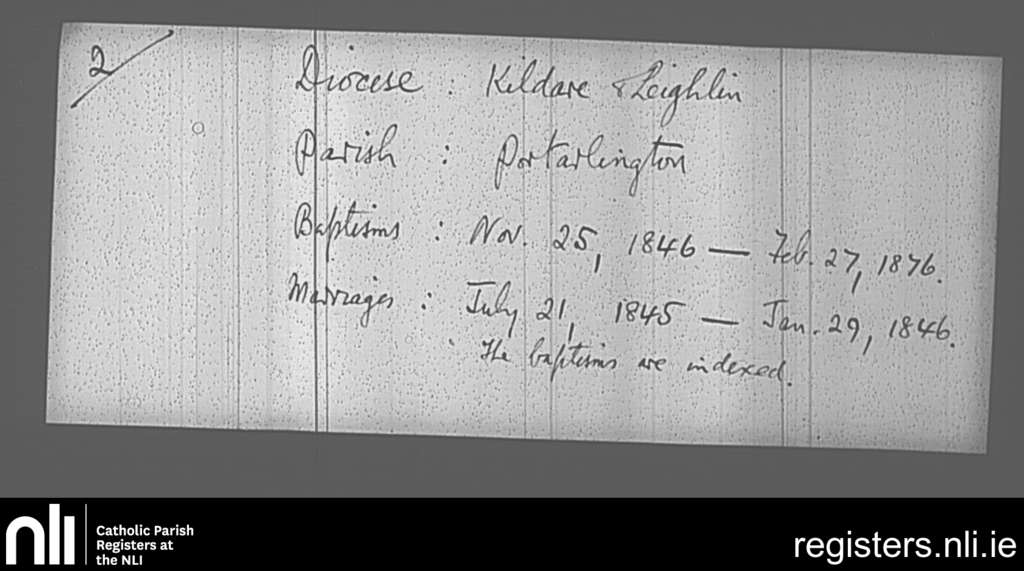 2/
Diocese : Kildare & Leighlin
Parish : Portarlington
Baptisms : Nov. 25, 1846 — Feb. 27, 1876.
Marriages : July 21, 1845 — Jan. 29, 1846.
The baptisms are indexed.
nli
Catholic Parish
Registers at
the NLI
registers.nli.ie